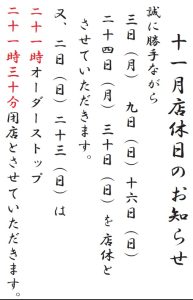 十一月店休日のお知らせ
誠に勝手ながら
三日（月）　九日（日）十六日（日）
二十四日（月）　三十日（日）を店休と
させていただきます。
又、二日（日）二十三（日）は
二十一時オーダーストップ
二十一時三十分閉店とさせていただきます。